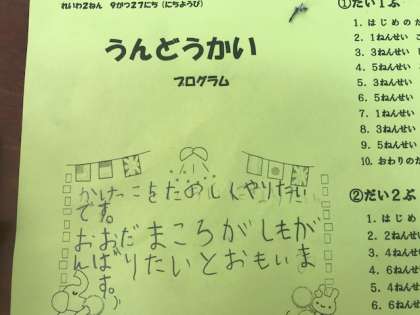 れいわ2ねん 9がつ27にち(にちようび)
うんどうかい
プログラム
かけっこをためしにやりたい
です。
おおだまころがしもが
んばりたいとおもいま
す。
①だい1ぶ
1. はじめの
2. 1ねんせい
3. 3ねんせい
4. 5ねんせい
5. 1ねんせい
6. 5ねんせい
7. 1ねんせ
8. 3ねんせ
9. 5ねんせ
10. おわりの
②だい2ぶ
1. はじめ
2. 2ねんせ
3. 4ねんせ
4. 6ねんせ
5. 4ねんせ
6. 6ねん